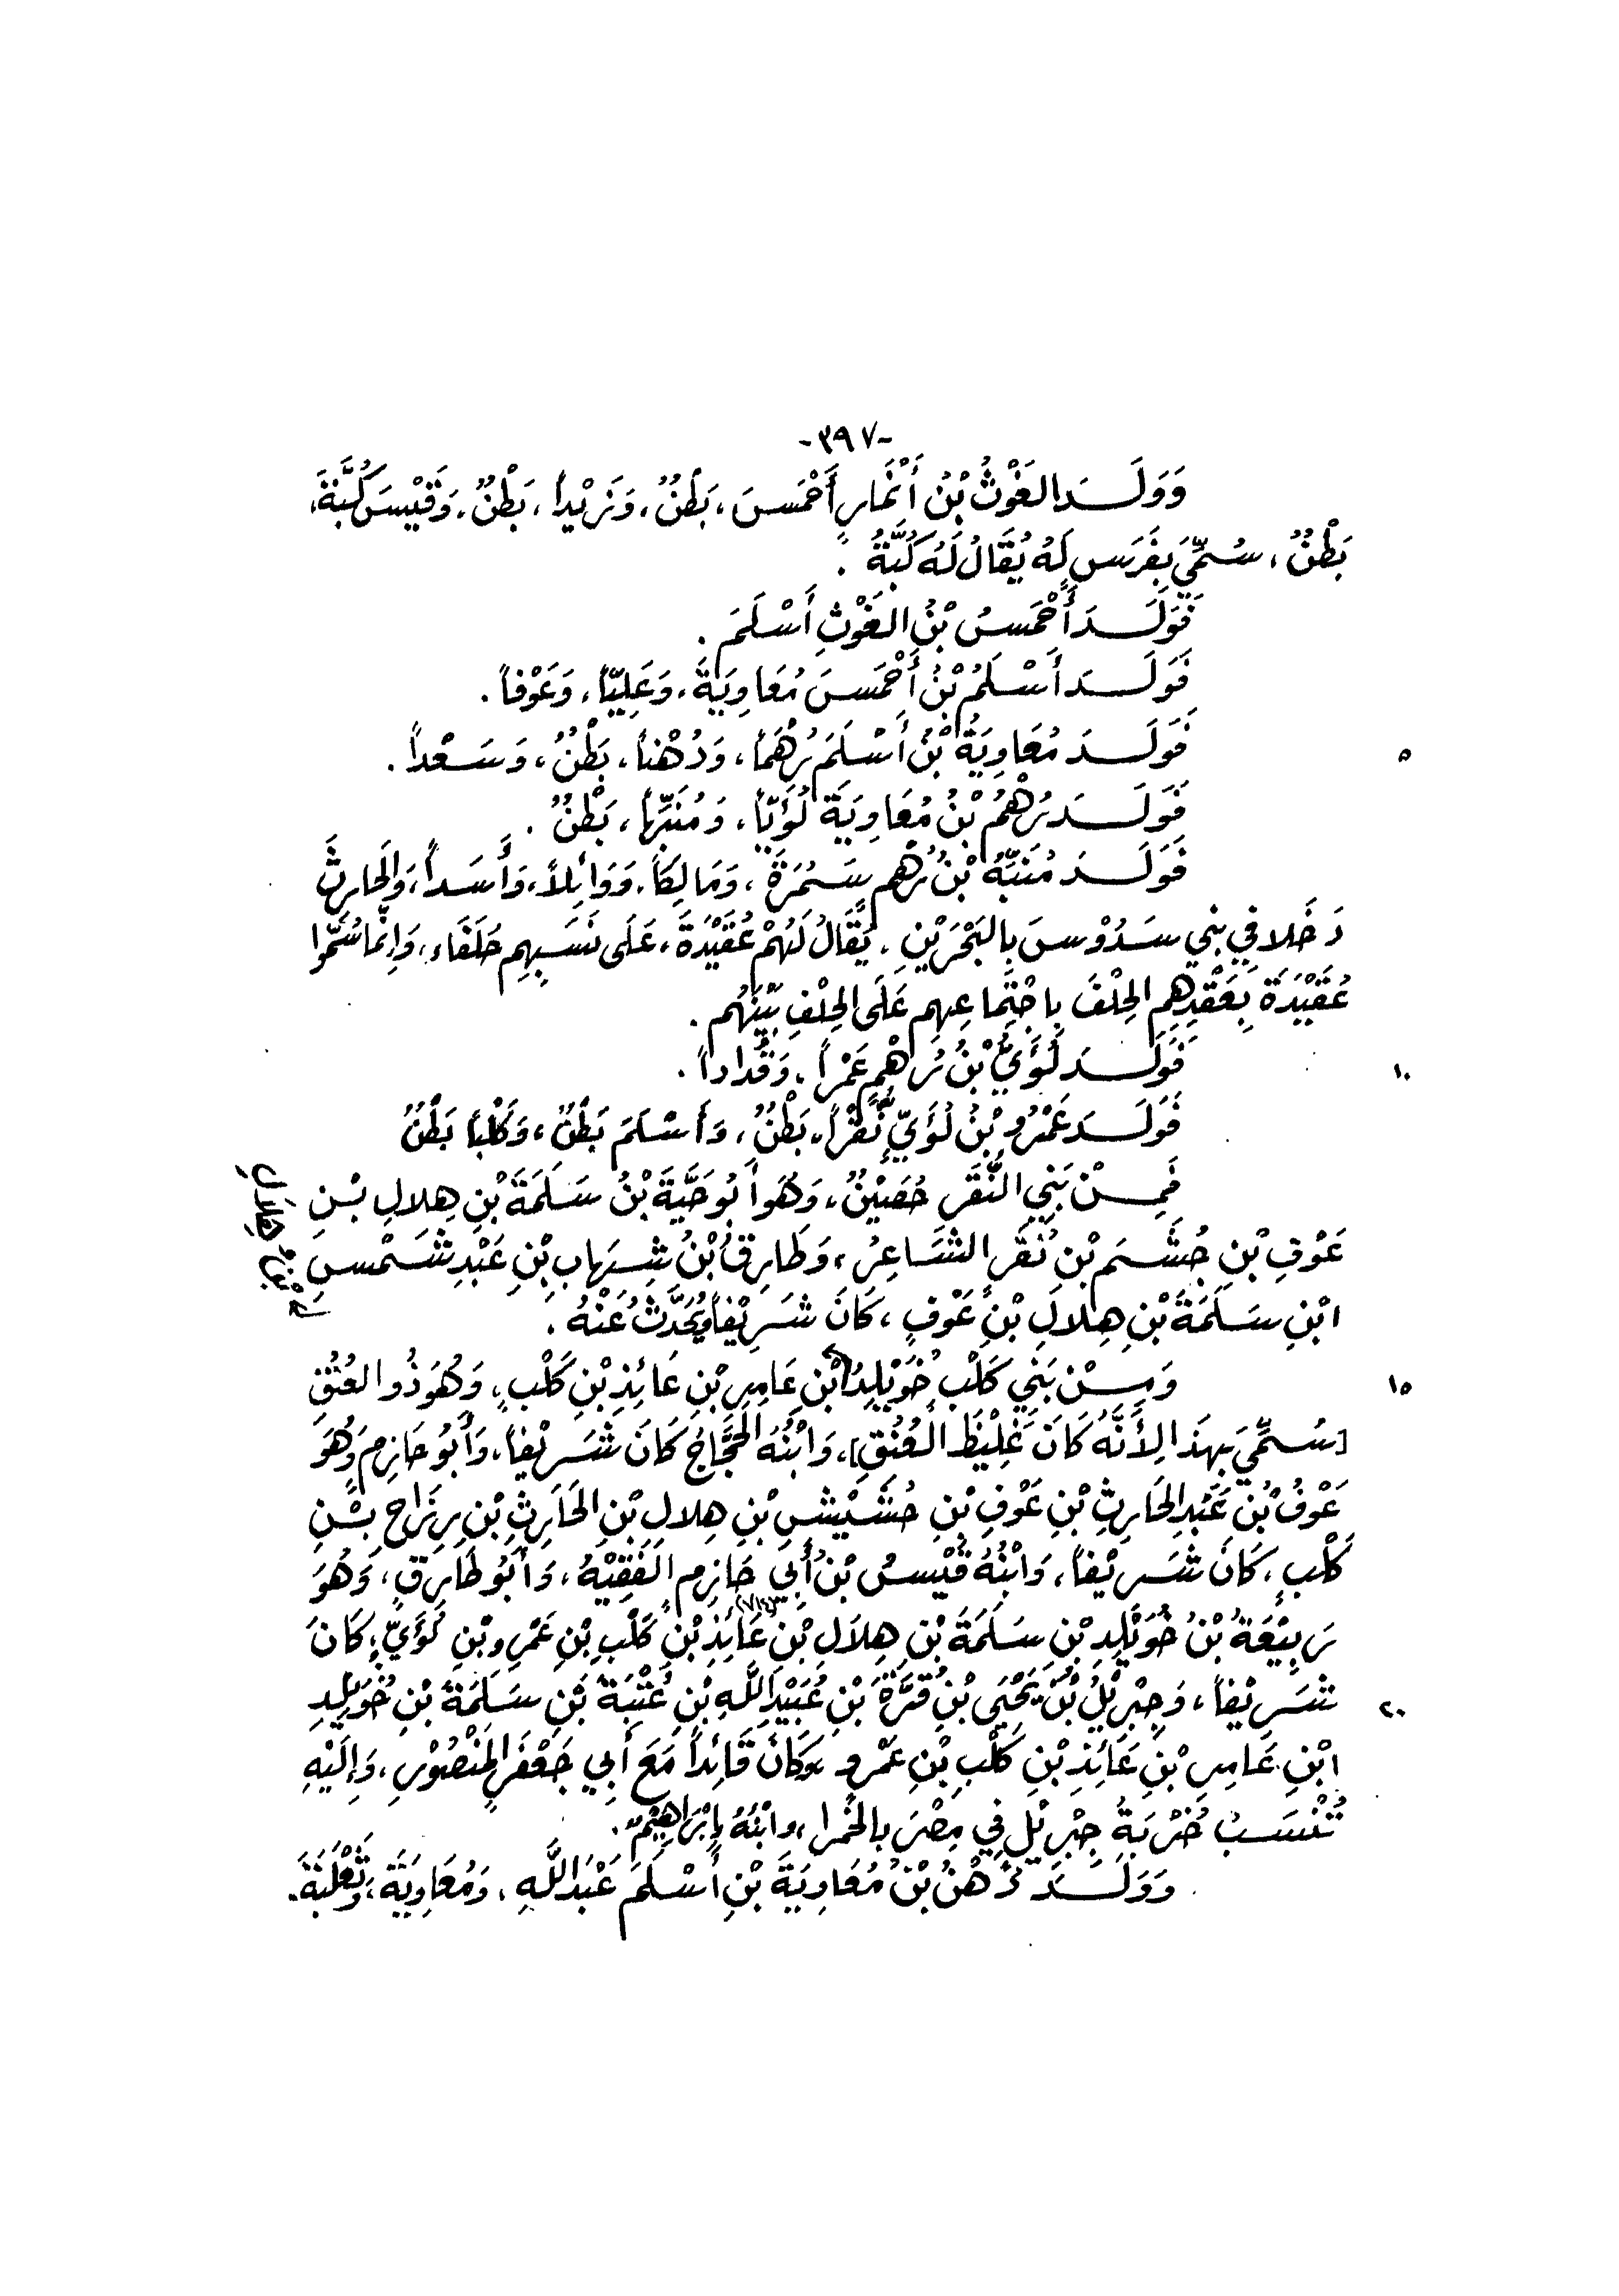 -٣٩٧-
وَوَلَدَ الغَوْثُ بْنُ أَنْمَارٍ أَحْمَسَ، بَطْنٌ، وَزَيْداً، بَطْنٌ، وَقَيْسَ كُبَّةَ،
بَطْنٌ، سُمِّيَ بِفَرَسٍ لَهُ يُقَالُ لَهُ كُبَّةُ.
فَوَلَدَ أَحْمَسُ بْنُ الغَوْثِ أَسْلَمَ.
فَوَلَدَ أَسْلَمُ بْنُ أَحْمَسَ مُعَاوِيَةَ، وَعَلِيّاً، وَعَوْفاً.
فَوَلَدَ مُعَاوِيَةُ بْنُ أَسْلَمَ رُهْمَاً، وَدُهْناً، بَطْنٌ، وَسَعْداً. ٥
فَوَلَدَ رُهْمُ بْنُ مُعَاوِيَةَ لُؤَيّاً، وَمُنَبِّهاً، بَطْنٌ.
فَوَلَدَ مُنَبِّهُ بْنُ رُهْمٍ سَمُرَةَ، وَمَالِكاً، وَوَائِلاً، وَأَسَداً، وَالحَارِثَ
دَخَلا فِي بَنِي سَدُوْسَ بِالبَحْرَيْنِ، يُقَالُ لَهُمْ عُقَيْدَةَ، عَلَى نَسَبِهِم حُلَفَاء، وَإِنَّمَا سُمُّوا
عُقَيْدَةَ بِعَقْدِهِمِ الحِلْفَ بِاجْتِمَاعِهِم عَلَى الحِلْفِ بَيْنَهُم.
فَوَلَدَ لُؤَيُّ بْنُ رُهْمٍ عَمْراً، وَقُدَاداً. ١٠
فَوَلَدَ عَمْرُو بْنُ لُؤَيٍّ نُقْراً، بَطْنٌ، وَأَسْلَمَ بَطْنٌ، وَكَلْباً بَطْنٌ
فَمِنْ بَنِي النُّقَرِ حُصَيْنٌ، وَهُوَ أَبُو حَيَّةَ بْنُ سَلَمَةَ بْنِ هِلالِ بْنِ
عَوْفِ بْنِ جُشَمَ بْنِ نُقَرٍ الشَّاعِرُ، وَطَارِقُ بْنُ شِهَابِ بْنِ عَبْدِ شَمْسِ
بْنِ هِلَالِ
ابْنِ سَلَمَةَ بْنِ هِلالِ بْنِ عَوْفٍ، كَانَ شَرِيْفاً وَيُحَدَّثُ عَنْهُ.
وَمِنْ بَنِي كَلْبٍ خُوَيْلِدُ ابْنِ عَامِرِ بْنِ عَائِذِ بْنِ كَلْبٍ، وَهُوَ ذُو العُنُقِ ١٥
[سُمِّيَ بِهَذَا لِأَنَّهُ كَانَ غَلِيْظَ العُنُقِ]، وَابْنُهُ الحَجَّاجُ كَانَ شَرِيْفاً، وَأَبُو حَازِمٍ وَهُوَ
عَوْفُ بْنُ عَبْدِ الحَارِثِ بْنِ عَوْفِ بْنِ حُشَيْشِ بْنِ هِلالِ بْنِ الحَارِثِ بْنِ رِزَاحِ بْنِ
كَلْبٍ، كَانَ شَرِيْفاً، وَابْنُهُ قَيْسُ بْنُ أَبِي حَازِمٍ الفَقِيْهُ، وَأَبُو طَارِقٍ، وَهُوَ
رَبِيْعَةُ بْنُ خُوَيْلِدِ بْنِ سَلَمَةَ بْنِ هِلَالِ بْنِ عَائِذِ بْنِ كَلْبِ بْنِ عَمْرِو بْنِ لُؤَيٍّ، كَانَ
شَرِيْفاً، وَجِبْرِيْلُ بْنُ يَحْيَى بْنِ قُرَّةَ بْنِ عُبَيْدِ اللَّهِ بْنِ عُتْبَةَ بْنِ سَلَمَةَ بْنِ خُوَيْلِدِ ٢٠
ابْنِ عَامِرِ بْنِ عَائِذِ بْنِ كَلْبِ بْنِ عَمْرٍو وَكَانَ قَائِداً مَعَ أَبِي جَعْفَرٍ المَنْصُوْرِ، وَإِلَيْهِ
تُنْسَبُ خُرْبَةُ جِبْرِيْل فِي مِصْرَ بِالحَمْرا، وابْنُهُ إِبْرَاهِيْمُ.
وَوَلَدَ دُهْنُ بْنُ مُعَاوِيَةَ بْنِ أَسْلَمَ عَبْدَ اللَّهِ، وَمُعَاوِيَةَ، وَثَعْلَبَةَ.